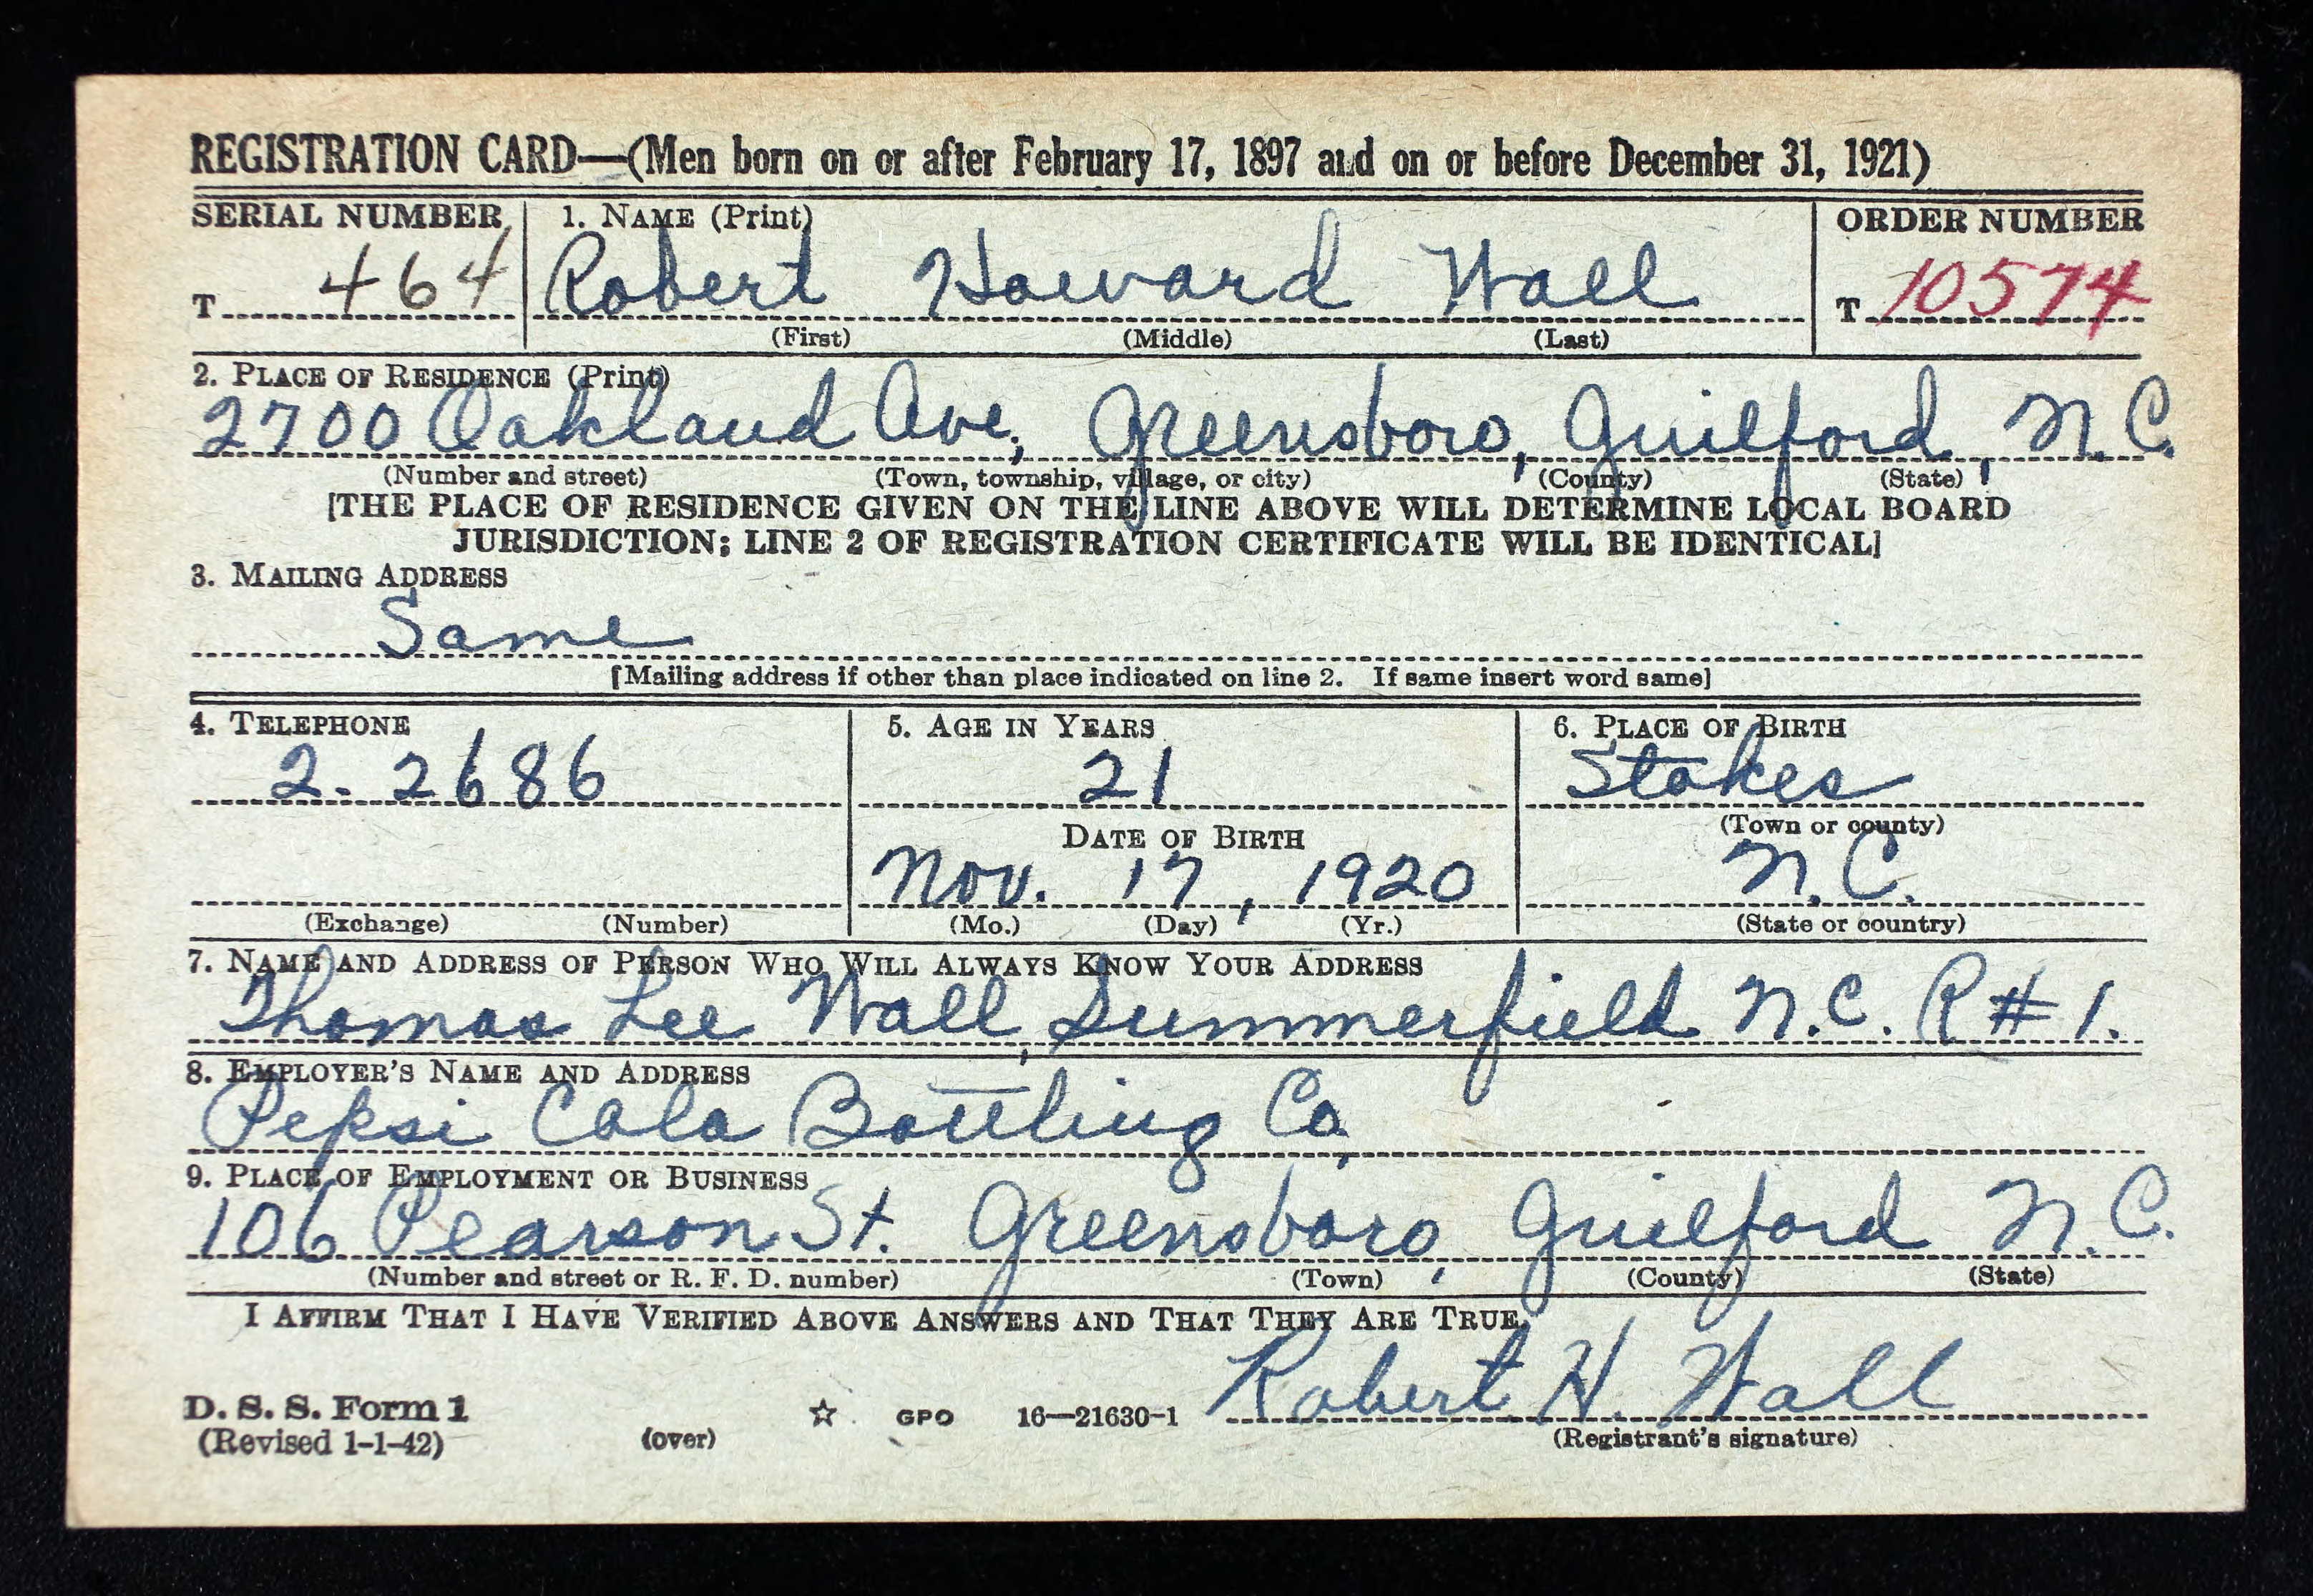 REGISTRATION CARD—(Men born on or after February 17, 1897 and on or before December 31, 1921)
SERIAL NUMBER 1. NAME (Print) ORDER NUMBER
T 464 Robert Howard Wall T 10574
(First) (Middle) (Last)
2. PLACE OF RESIDENCE (Print)
2700 Oakland Ave., Greensboro, Guilford, N.C.
(Number and street) (Town, township, village, or city) (County) (State)
[THE PLACE OF RESIDENCE GIVEN ON THE LINE ABOVE WILL DETERMINE LOCAL BOARD
JURISDICTION; LINE 2 OF REGISTRATION CERTIFICATE WILL BE IDENTICAL]
3. MAILING ADDRESS
Same
[Mailing address if other than place indicated on line 2. If same insert word same]
4. TELEPHONE 5. AGE IN YEARS 6. PLACE OF BIRTH
2-2686 21 Stokes
(Town or county)
DATE OF BIRTH
Nov. 17, 1920 N.C.
(Exchange) (Number) (Mo.) (Day) (Yr.) (State or country)
7. NAME AND ADDRESS OF PERSON WHO WILL ALWAYS KNOW YOUR ADDRESS
Thomas Lee Wall, Summerfield N.C. R#1.
8. EMPLOYER'S NAME AND ADDRESS
Pepsi Cola Bottling Co.
9. PLACE OF EMPLOYMENT OR BUSINESS
106 Pearson St. Greensboro, Guilford N.C.
(Number and street or R. F. D. number) (Town) (County) (State)
I AFFIRM THAT I HAVE VERIFIED ABOVE ANSWERS AND THAT THEY ARE TRUE.
Robert H. Wall
D. S. S. Form 1 ☆ GPO 16—21630-1
(Revised 1-1-42) (over) (Registrant's signature)